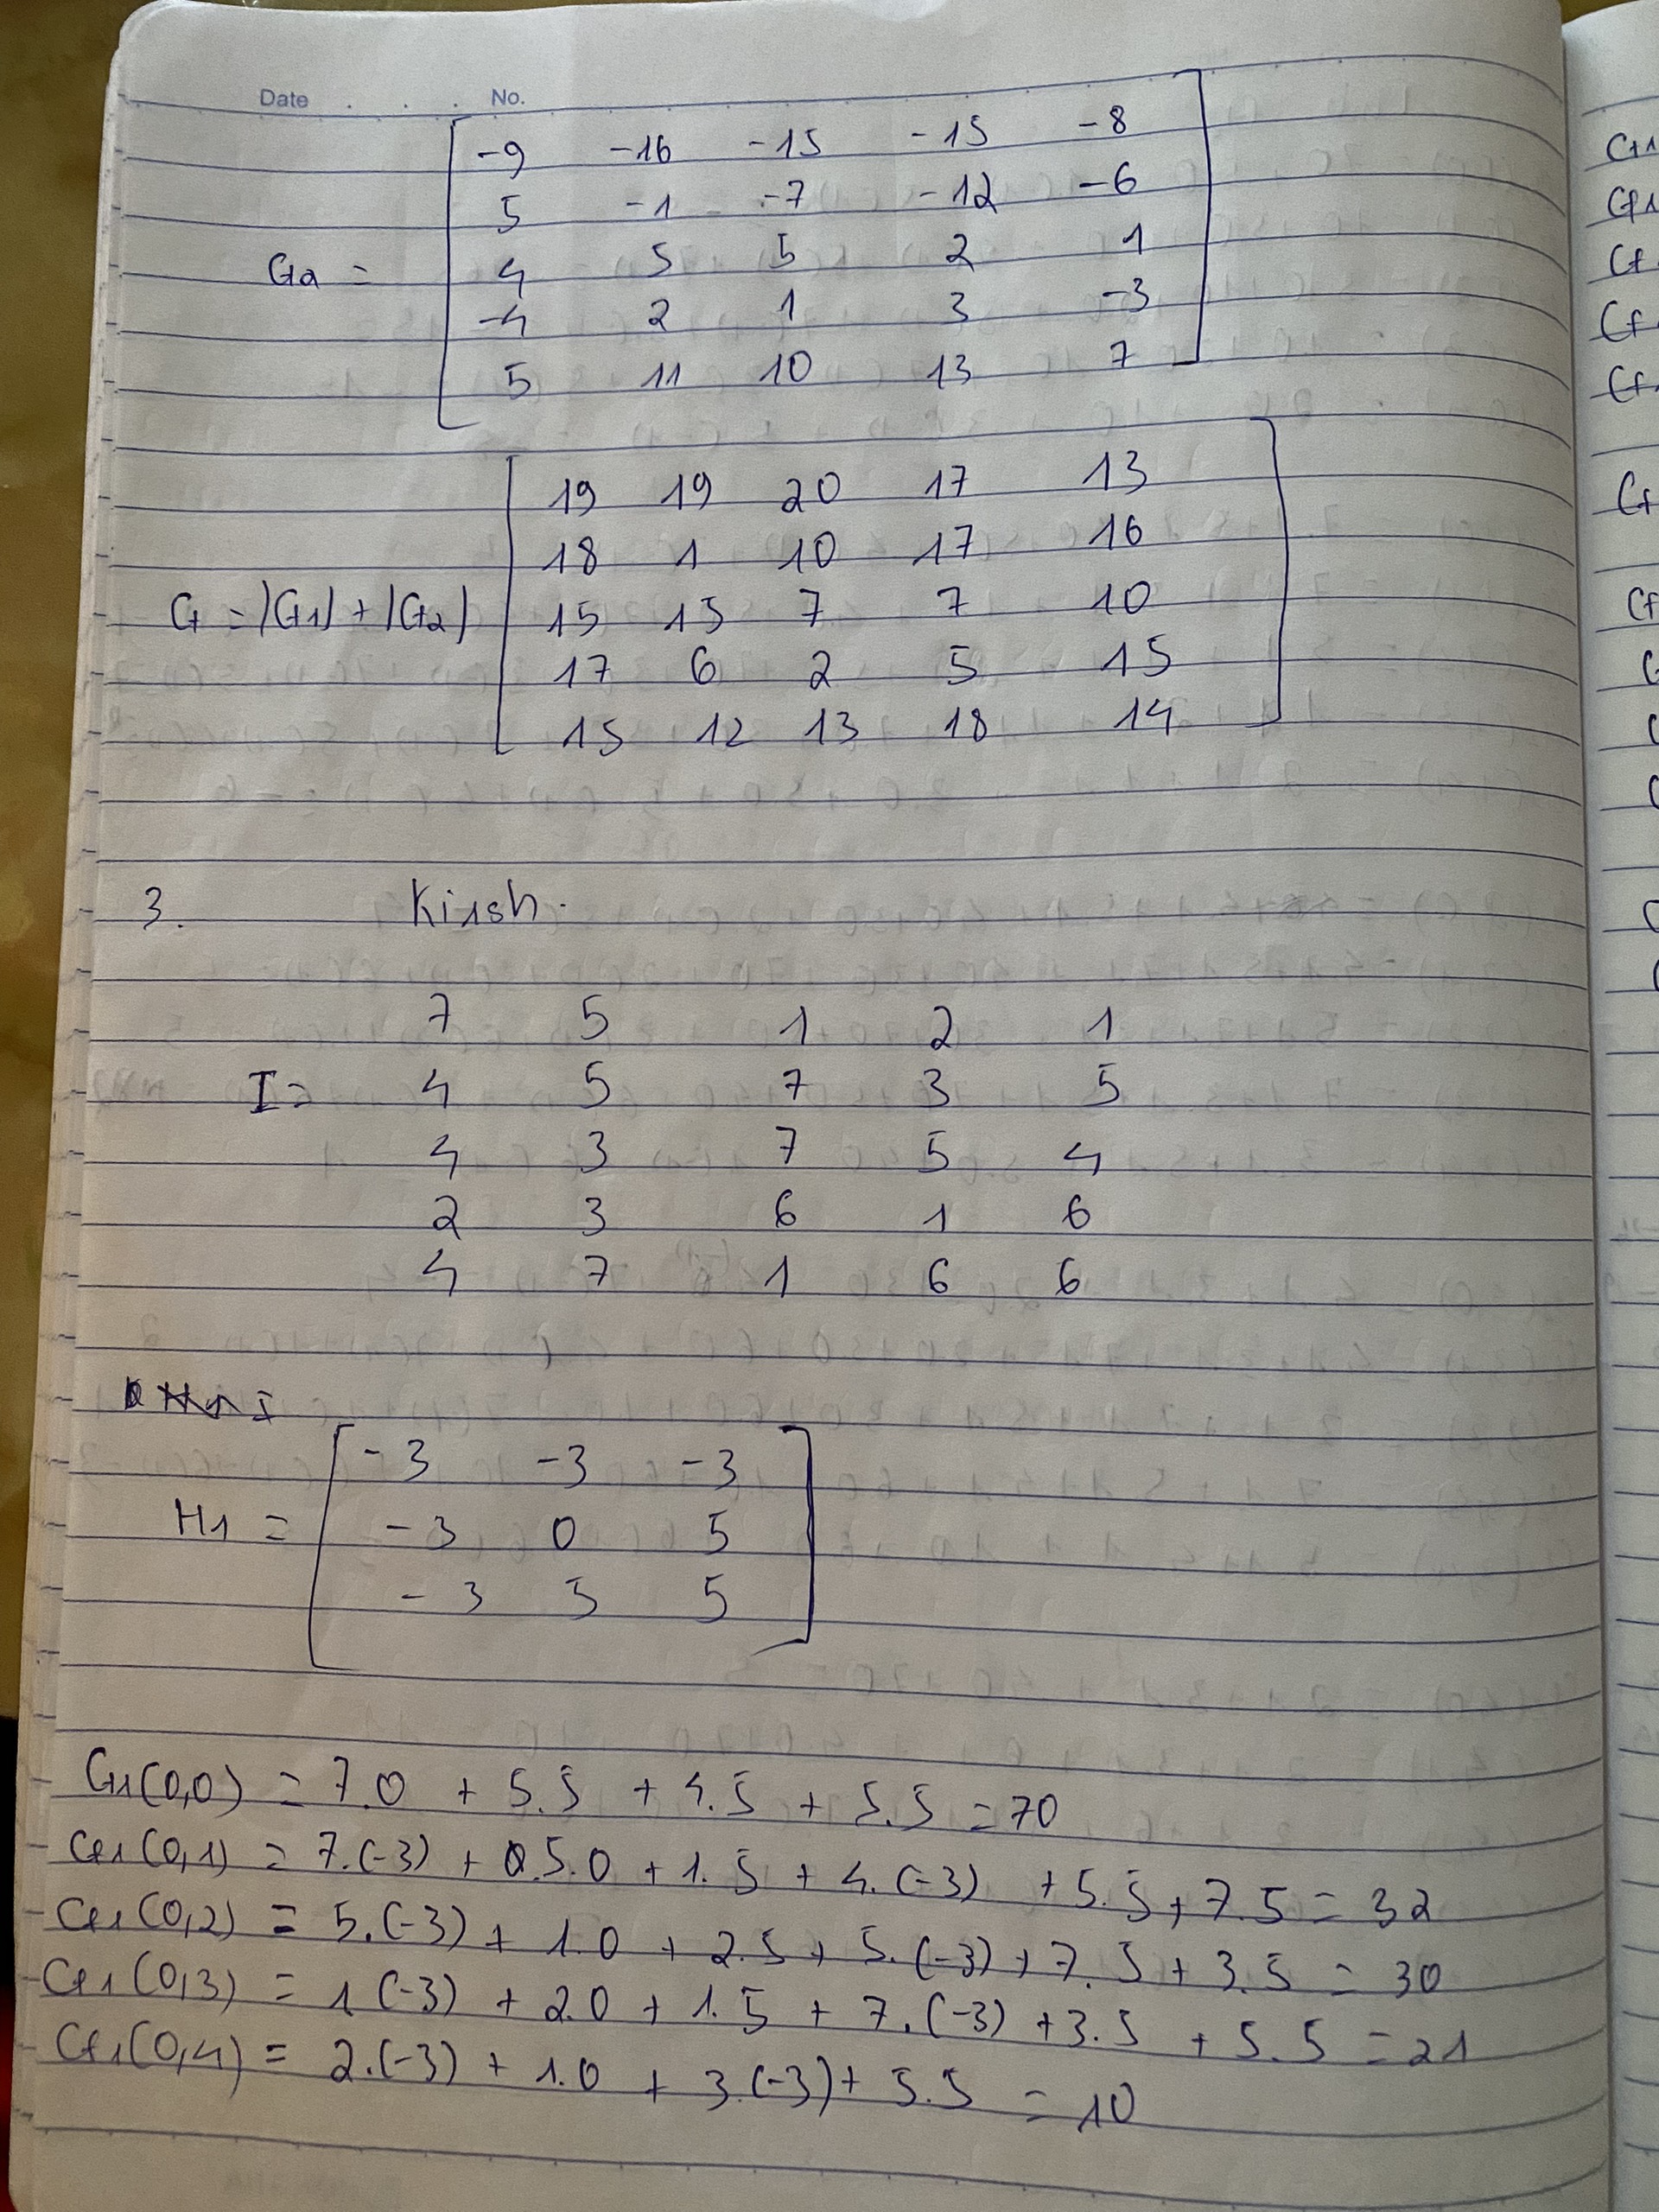 Date . . . No.
-9 -16 -15 -15 -8
5 -1 -7 -12 -6
G2 = 4 5 5 2 1
-4 2 1 3 -3
5 11 10 13 7
19 19 20 17 13
18 1 10 17 16
G = |G1| + |G2| 15 15 7 7 10
17 6 2 5 15
15 12 13 18 14
3. Kirsh.
7 5 1 2 1
I = 4 5 7 3 5
4 3 7 5 4
2 3 6 1 6
4 7 1 6 6
-3 -3 -3
H1 = -3 0 5
-3 5 5
G1(0,0) = 7.0 + 5.5 + 4.5 + 5.5 = 70
G1(0,1) = 7.(-3) + 5.0 + 1.5 + 4.(-3) + 5.5 + 7.5 = 32
G1(0,2) = 5.(-3) + 1.0 + 2.5 + 5.(-3) + 7.5 + 3.5 = 30
G1(0,3) = 1(-3) + 2.0 + 1.5 + 7.(-3) + 3.5 + 5.5 = 21
G1(0,4) = 2.(-3) + 1.0 + 3.(-3) + 5.5 = 10